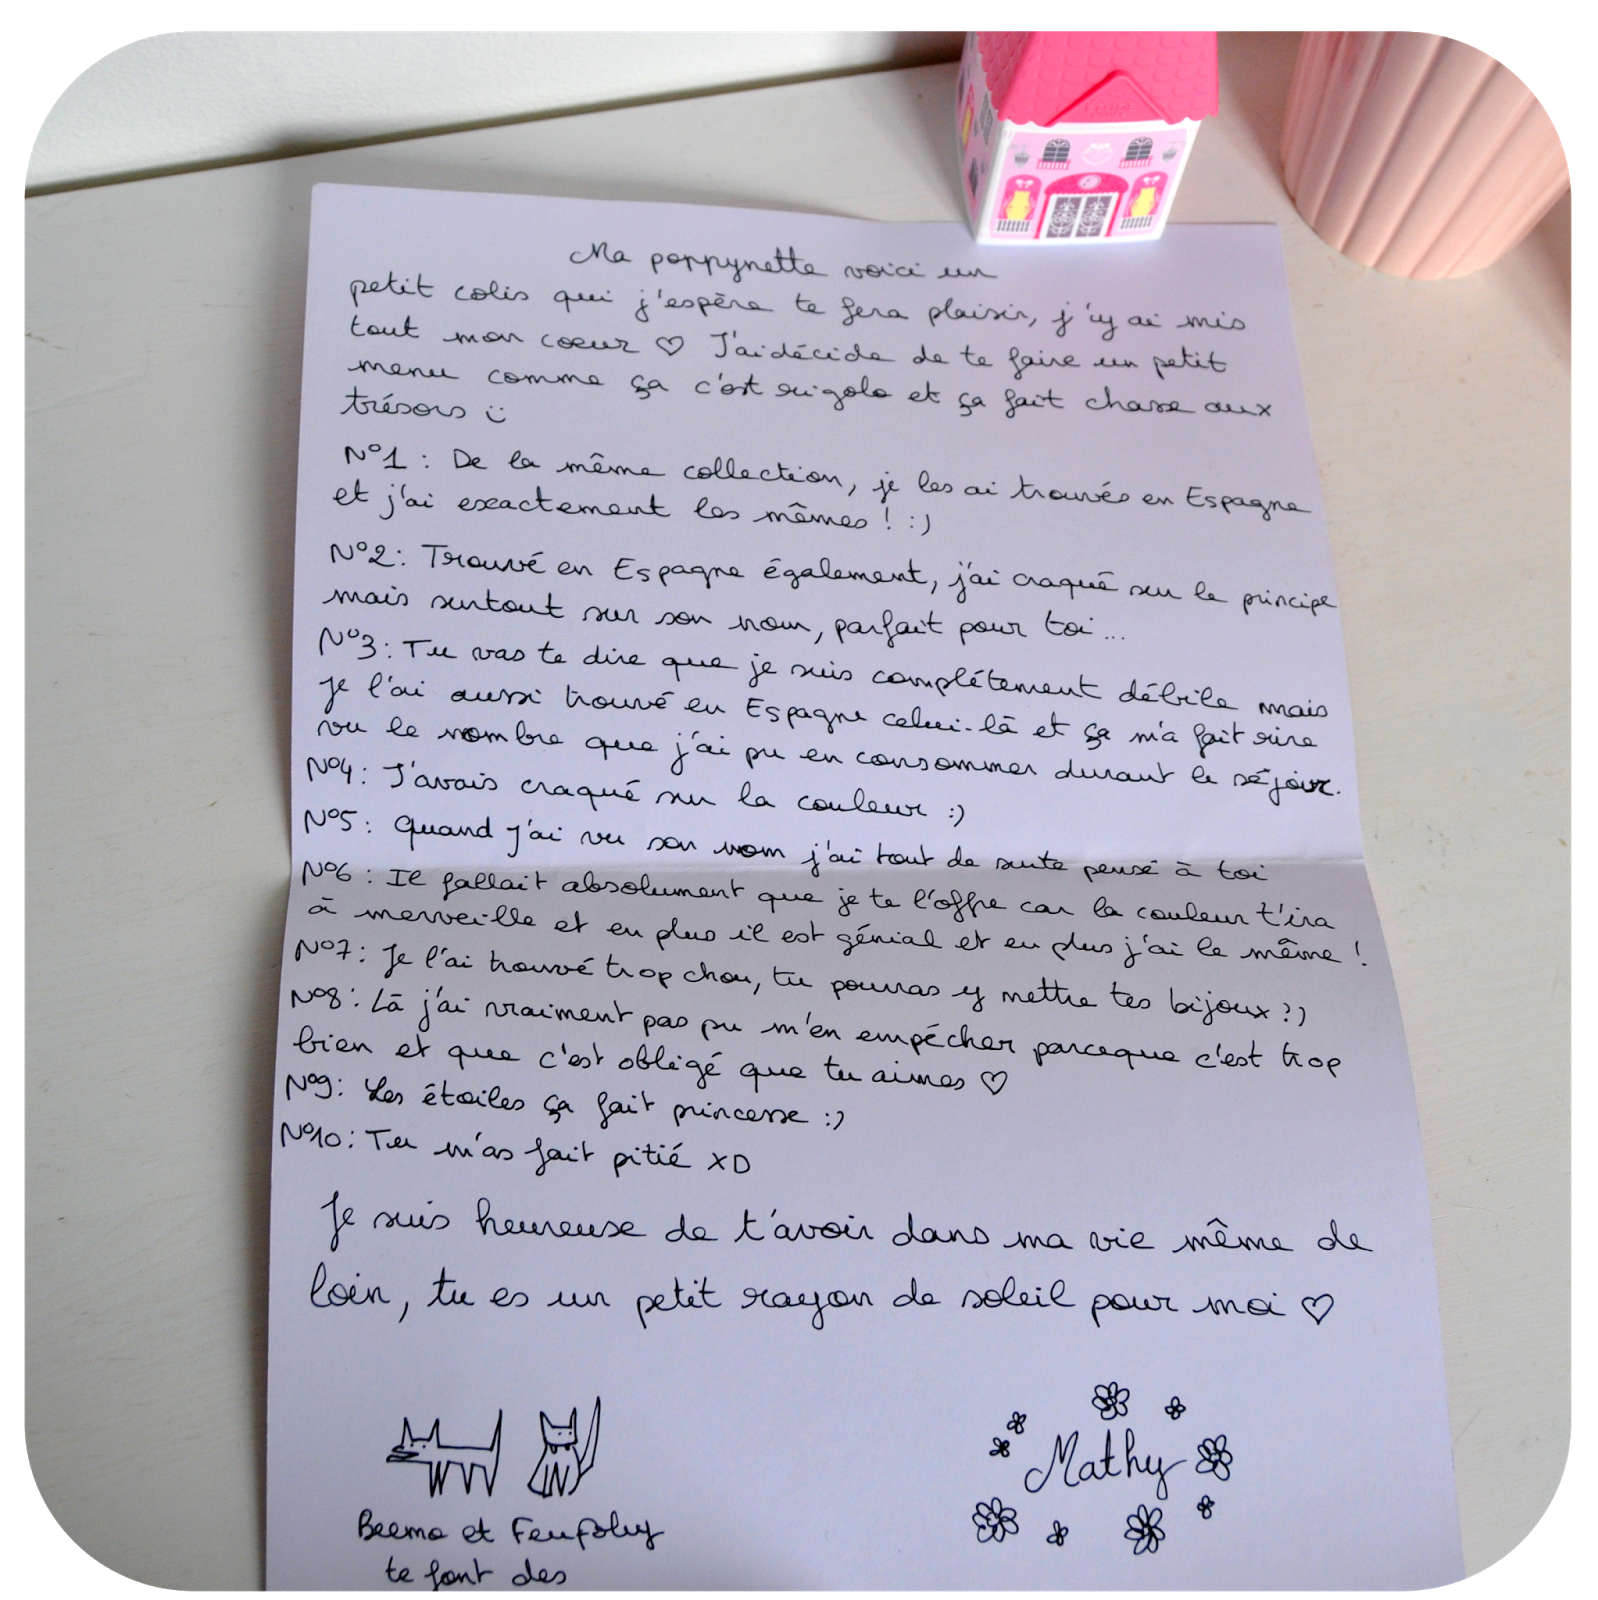 Ma poppynette voici un
petit colis qui j'espère te fera plaisir, j'y ai mis
tout mon coeur ♡ J'ai décidé de te faire un petit
menu comme ça c'est rigolo et ça fait chasse aux
trésors
N°1 : De la même collection, je les ai trouvés en Espagne
et j'ai exactement les mêmes ! :)
N°2 : Trouvé en Espagne également, j'ai craqué sur le principe
mais surtout sur son nom, parfait pour toi ...
N°3 : Tu vas te dire que je suis complétement débile mais
je l'ai aussi trouvé en Espagne celui-là et ça m'a fait rire
vu le nombre que j'ai pu en consommer durant le séjour.
N°4 : J'avais craqué sur la couleur :)
N°5 : Quand j'ai vu son nom j'ai tout de suite pensé à toi
N°6 : Il fallait absolument que je te l'offre car la couleur t'ira
à merveille et en plus il est génial et en plus j'ai le même !
N°7 : Je l'ai trouvé trop chou, tu pourras y mettre tes bijoux ?)
N°8 : Là j'ai vraiment pas pu m'en empécher parceque c'est trop
bien et que c'est obligé que tu aimes ♡
N°9 : Les étoiles ça fait princesse :)
N°10 : Tu m'as fait pitié XD
Je suis heureuse de t'avoir dans ma vie même de
loin, tu es un petit rayon de soleil pour moi ♡
Mathy
Beemo et Feufoluy
te font des